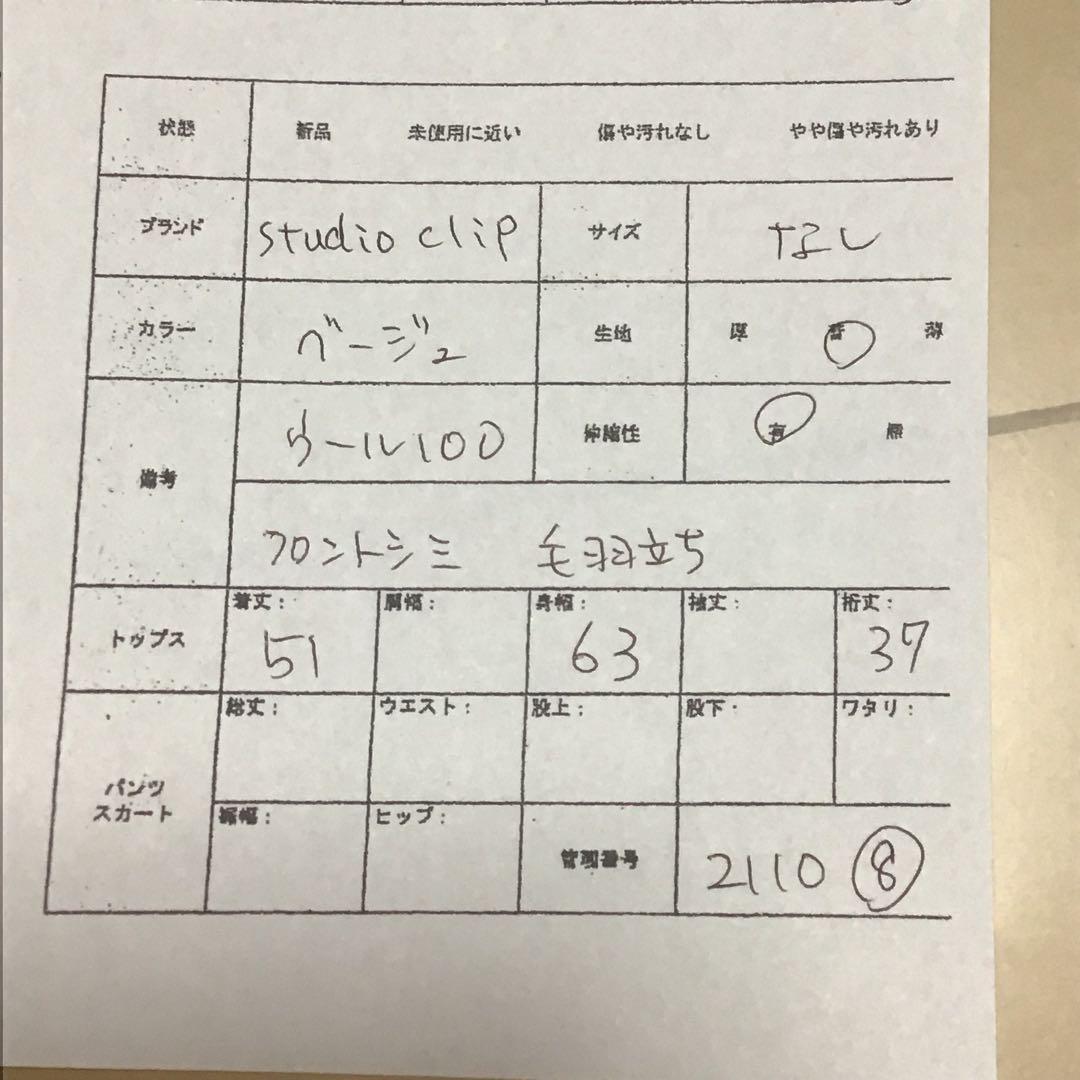 状態 新品 未使用に近い 傷や汚れなし やや傷や汚れあり
ブランド studio clip サイズ なし
カラー ベージュ 生地 厚 普 薄
備考 ウール100 伸縮性 有 無
フロントシミ 毛羽立ち
トップス 着丈: 51 肩幅: 身幅: 63 袖丈: 裄丈: 37
パンツ スカート 総丈: ウエスト: 股上: 股下: ワタリ:
裾幅: ヒップ: 管理番号 2110 ⑧